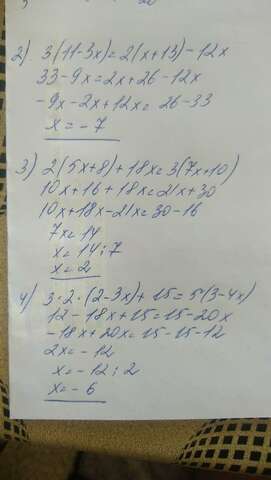 2) 3(11-3x)=2(x+13)-12x
33-9x=2x+26-12x
-9x-2x+12x=26-33
x=-7
3) 2(5x+8)+18x=3(7x+10)
10x+16+18x=21x+30
10x+18x-21x=30-16
7x=14
x=14:7
x=2
4) 3·2·(2-3x)+15=5(3-4x)
12-18x+15=15-20x
-18x+20x=15-15-12
2x=-12
x=-12:2
x=-6